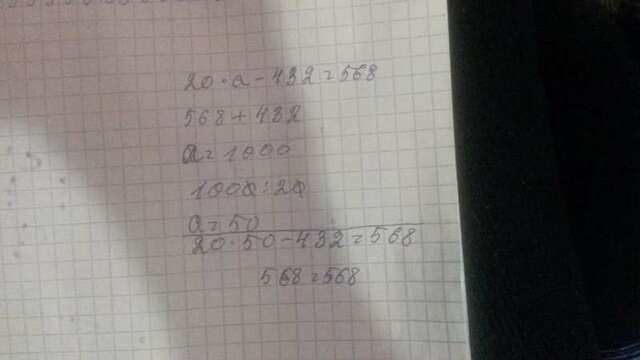 20·a-432=568
568+432
a=1000
1000:20
a=50
20·50-432=568
568=568